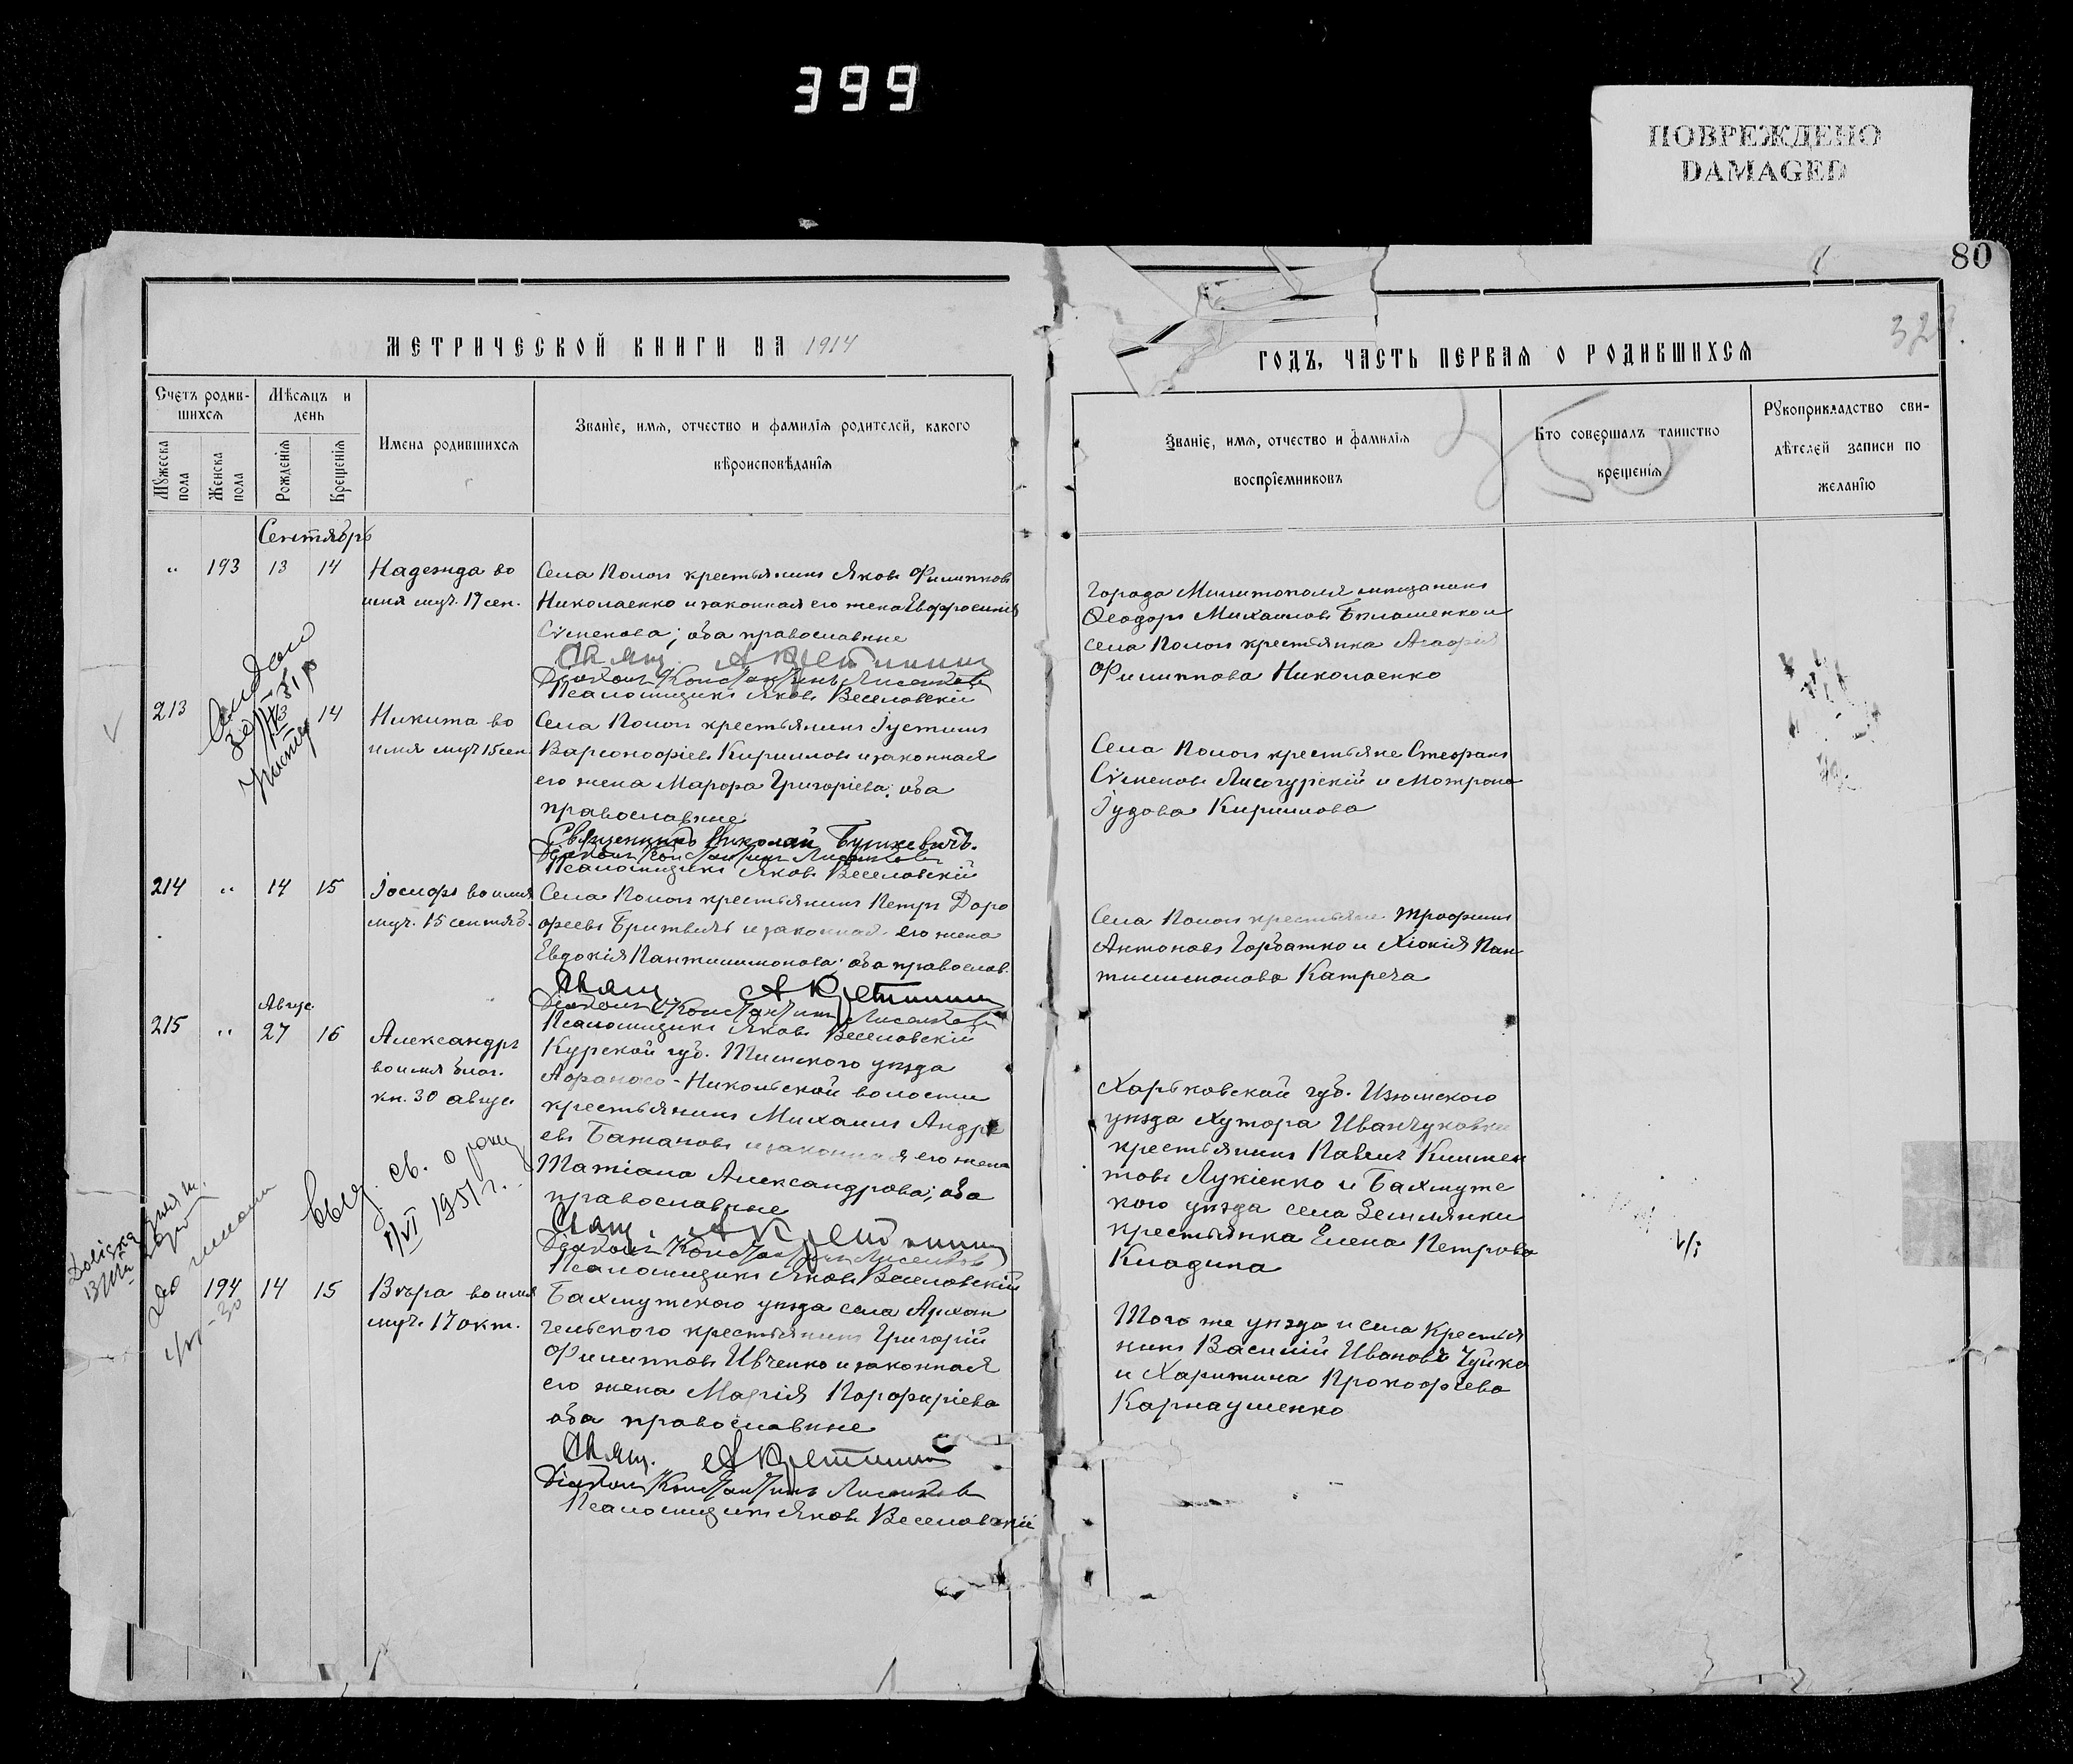 399
ПОВРЕЖДЕНО
DAMAGED
80
МЕТРИЧЕСКОЙ КНИГИ НА 1914
ГОДЪ, ЧАСТЬ ПЕРВАЯ О РОДИВШИХСЯ
Счетъ родив-
шихся
Мѣсяцъ и
день
Мужеска
пола
Женска
пола
Рожденія
Крещенія
Имена родившихся
Званіе, имя, отчество и фамилія родителей, какого
вѣроисповѣданія
Званіе, имя, отчество и фамилія
воспріемниковъ
Кто совершалъ таинство
крещенія
Рукоприкладство сви-
дѣтелей записи по
желанію
Сентябрь
" 193 13 14
Надежда во
имя муч. 17 сен.
Села Пологъ крестьянинъ Яковъ Филипповъ
Николаенко и законная его жена Евфросинія
Сѵменова; оба православные
Свящ.
Діаконъ Константинъ
Псаломщикъ Яковъ Веселовскій
Города Милитополя мѣщанинъ
Ѳеодоръ Михаиловъ Билашенко и
села Пологъ крестьянка Агафія
Филиппова Николаенко
213 14
Никита во
имя муч 15 сен
Села Пологъ крестьянинъ Іустинъ
Варсонофіевъ Кирилловъ и законная
его жена Марфа Григоріева; оба
православные
Священникъ Николай
Діаконъ Константинъ
Псаломщикъ Яковъ Веселовскій
Села Пологъ крестьяне Стефанъ
Сѵменовъ Лисогурскій и Мотрона
Іудова Кириллова
214 " 14 15
Іосифъ во имя
муч. 15 сентяб.
Села Пологъ крестьянинъ Петръ Доро
феевъ Бритвинъ и законная его жена
Евдокія Пантилимонова; оба православ.
Свящ.
Діаконъ Константинъ
Псаломщикъ Яковъ Веселовскій
Села Пологъ крестьяне Трофимъ
Антоновъ Горбатко и Хіонія Пан
тилимонова Катреча
Авгус.
215 " 27 16
Александръ
во имя благ.
кн. 30 август
Курской губ. Тимского уѣзда
Афанасо-Никольской волости
крестьянинъ Михаилъ Андре
евъ Бажановъ и законная его жена
Татіана Александрова; оба
православные
Свящ.
Діаконъ Константинъ
Псаломщикъ Яковъ Веселовскій
Харьковской губ. Изюмского
уѣзда хутора Иванчуковки
крестьянинъ Павелъ Климен
товъ Лукіенко и Бахмутс
кого уѣзда села Землянки
крестьянка Елена Петрова
Кладина
Выд. св. о рожд
1/VI 1951 г.
194 14 15
Вѣра во имя
муч. 17 окт.
Бахмутского уѣзда села Архан
гельского крестьянинъ Григорій
Филипповъ Ивченко и законная
его жена Марія Порфиріева
оба православные
Свящ.
Діаконъ Константинъ
Псаломщикъ Яковъ Веселовскій
Того же уѣзда и села крестья
нинъ Василій Ивановъ Чуйко
и Харитина Прокофіева
Карнаушенко